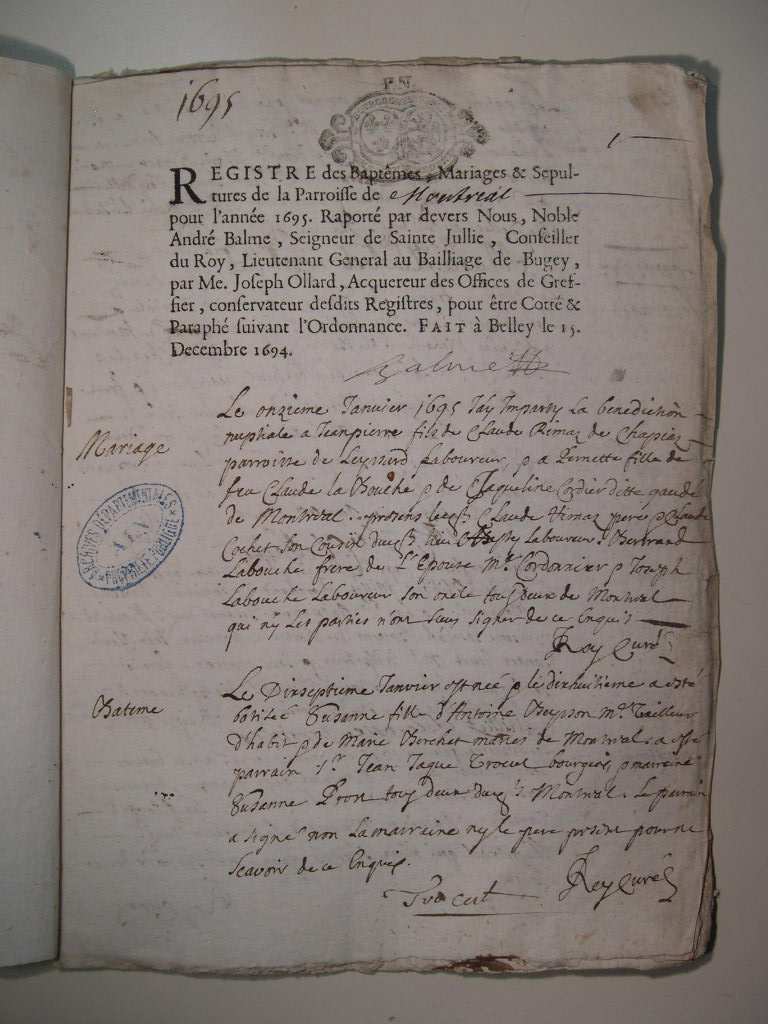 1695
REGISTRE des Baptêmes, Mariages & Sepul-
tures de la Parroisse de Montreal
pour l'année 1695. Raporté par devers Nous, Noble
André Balme, Seigneur de Sainte Jullie, Conseiller
du Roy, Lieutenant General au Bailliage de Bugey,
par Me. Joseph Ollard, Acquereur des Offices de Gref-
fier, conservateur desdits Registres, pour être Cotté &
Paraphé suivant l'Ordonnance. FAIT à Belley le 15.
Decembre 1694.
Balme
Mariage
Le onzieme Janvier 1695 Jay Imparty La benediction
nuptiale a Jeanpierre fils de Claude Rimaz de Chapiaz
parroisse de Leyssard Laboureur p a Pernette fille de
feu Claude la Bouche p de Jaqueline Cordier ditte
de Montreal presens Claude pere p Claude
Cochet son Cousin Laboureur Bertrand
Labouche frere de L'Epouse Mr. Cordonnier p Joseph
Labouche Laboureur son oncle tous deux de Montreal
qui ny Les parties n'ont sceu signer de ce Enquis
Roy Curé
Bateme
Le Dixseptieme Janvier est neé p le dixhuitieme a esté
batiseé Susanne fille d'Antoine Beysson Mr. Tailleur
d'habit p de Marie Berchet mariés de Montreal a esté
parrain Sr. Jean Jaque Trocut bourgeois p marreine
Susanne tous deux Montreal. Le parrain
a signé non La marreine ny le pere present pour ne
Scavoir de ce Enquis.
Trocut
Roy Curé
ARCHIVES DÉPARTEMENTALES
AIN